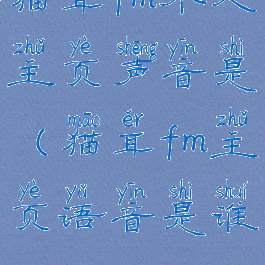 猫耳fm
zhǔ yè shēng yīn shì
主页声音是
māo ěr zhǔ
(猫耳fm主
yè yǔ yīn shì shuí
页语音是谁